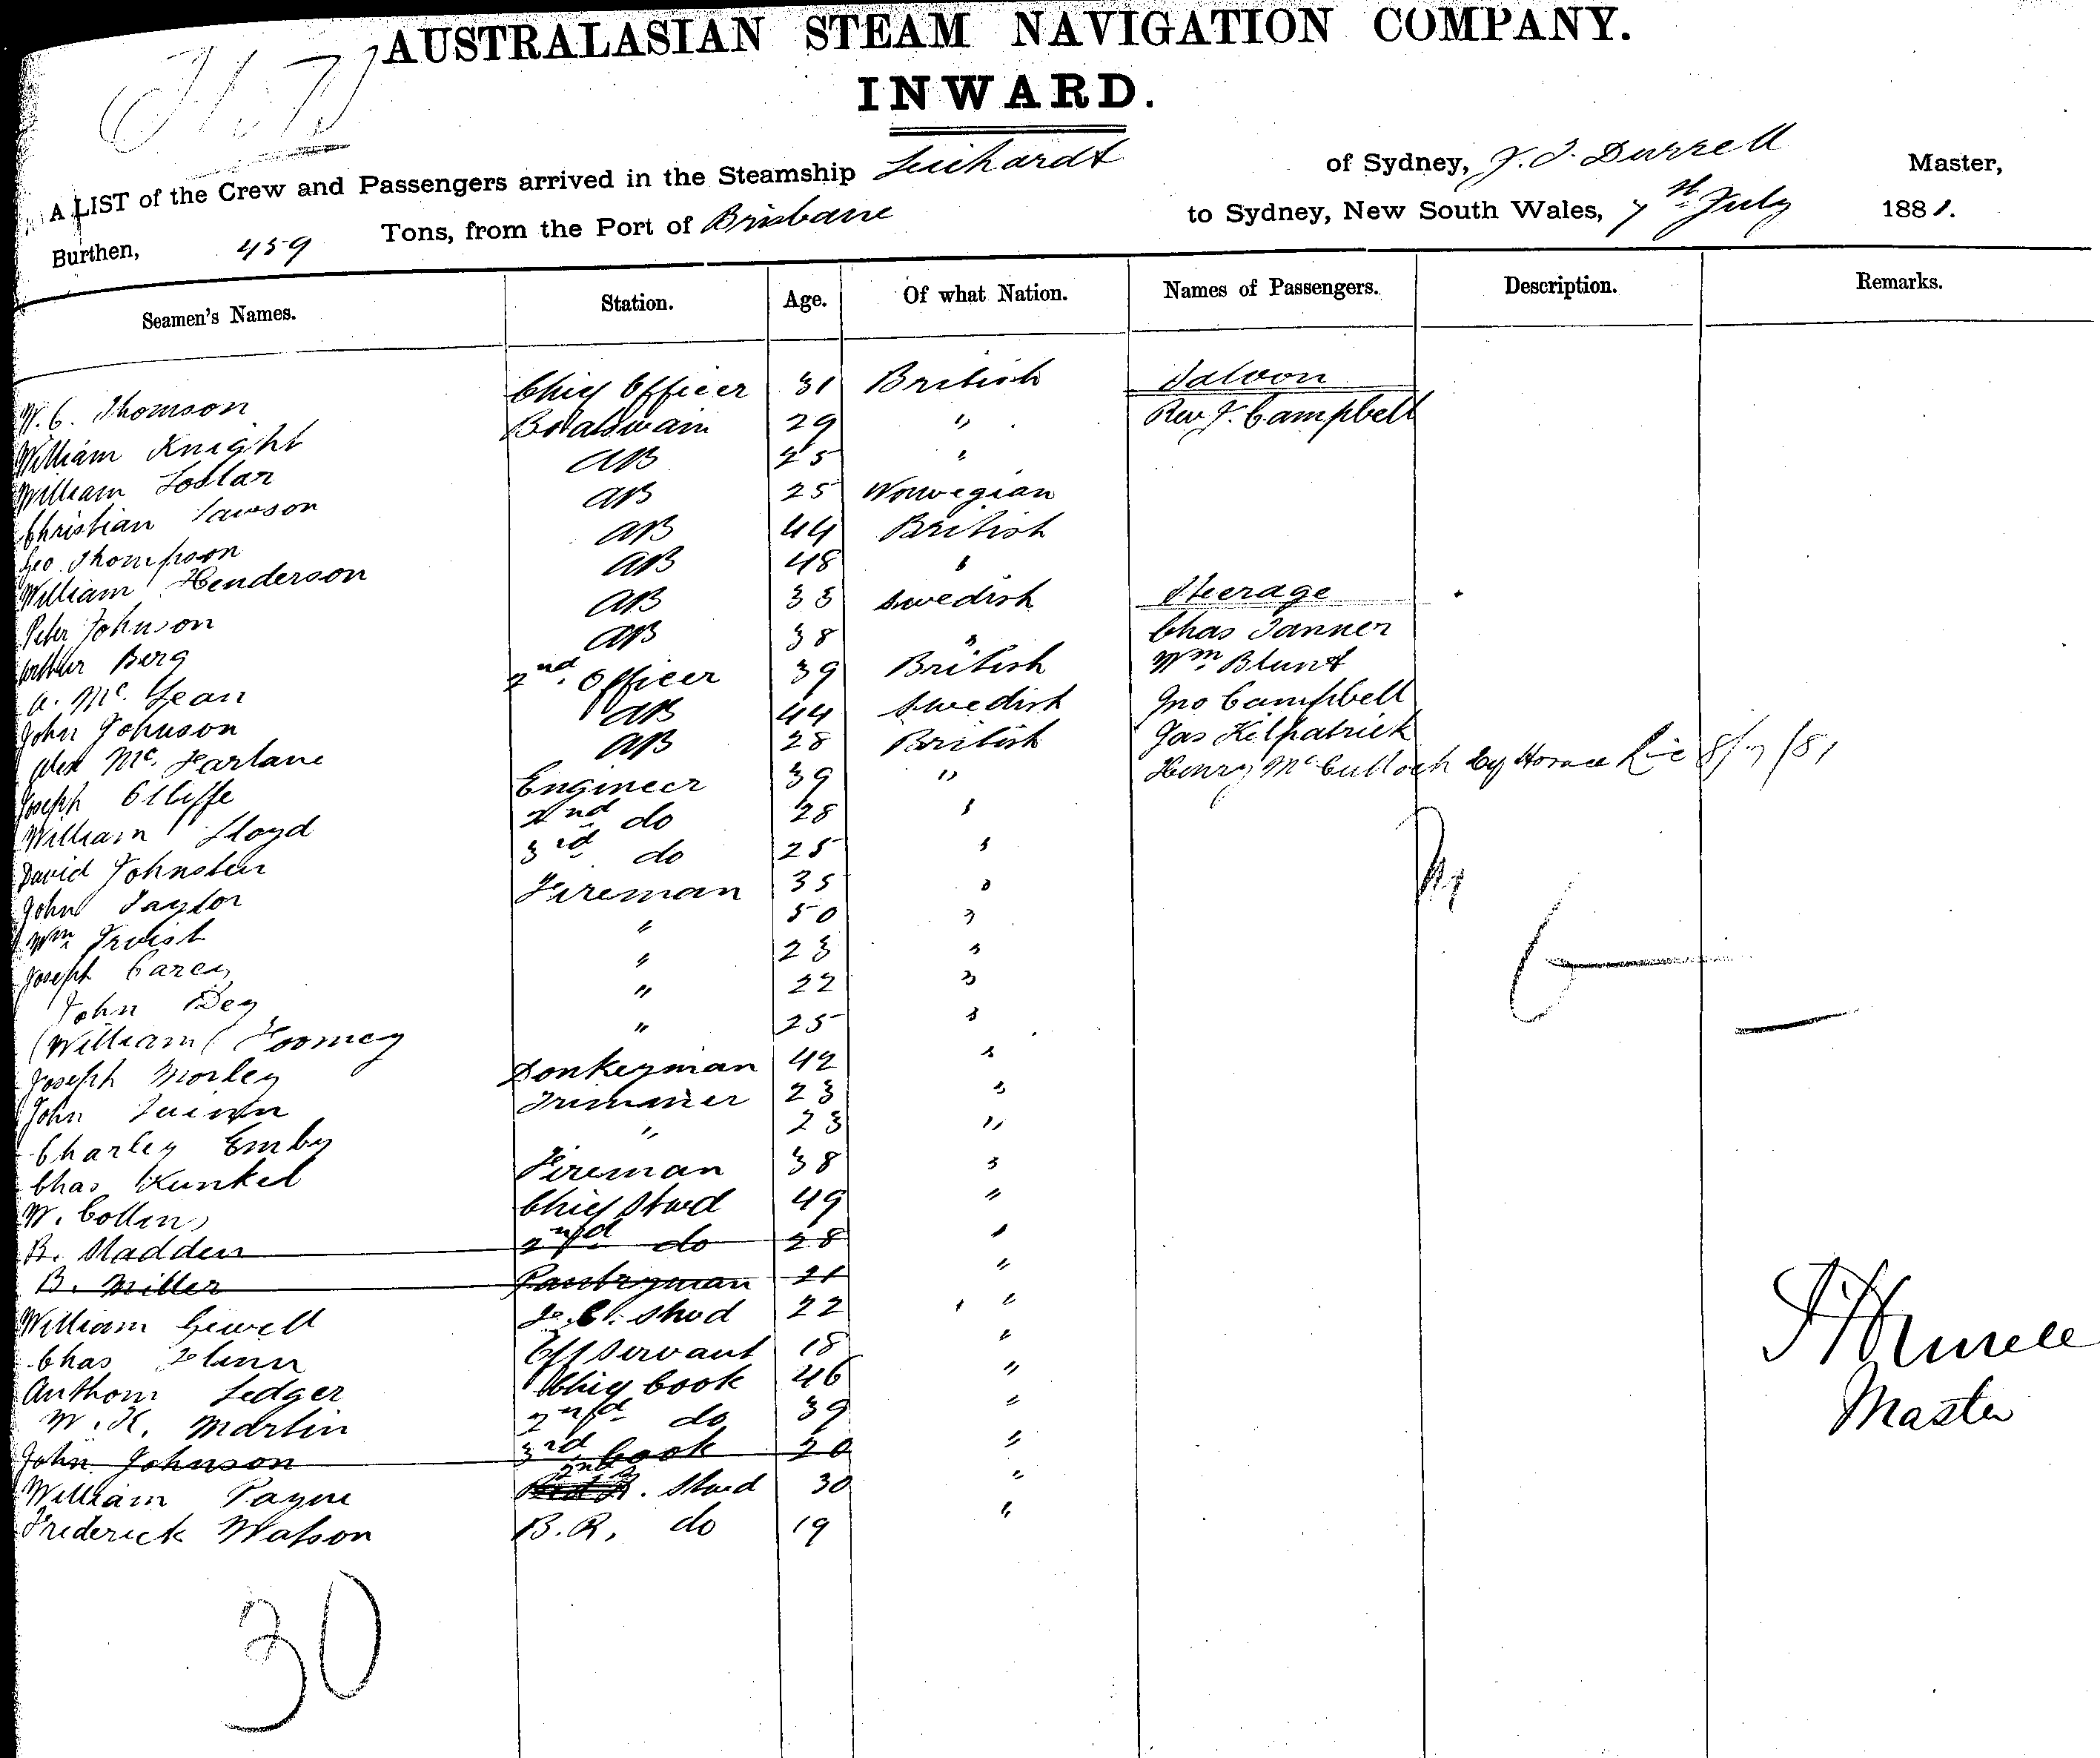 AUSTRALASIAN STEAM NAVIGATION COMPANY.
INWARD.
A LIST of the Crew and Passengers arrived in the Steamship Leichardt of Sydney, J. T. Durrell Master,
Burthen, 459 Tons, from the Port of Brisbane to Sydney, New South Wales, 7th July 1881.
Seamen's Names. Station. Age. Of what Nation. Names of Passengers. Description. Remarks.
W. C. Thomson Chief Officer 31 British Saloon
William Knight Boatswain 29 " Rev J. Campbell
William AB 25 "
Christian Lawson AB 25 Norwegian
Geo. Thompson AB 44 British
William Henderson AB 48 "
Peter Johnson AB 33 Swedish Steerage
Arthur Berg AB 38 " Chas Tanner
A. Mc. Lean 2nd Officer 39 British Wm Blunt
John Johnson AB 44 Swedish Jno Campbell
Alex Mc. Farlane AB 28 British Jas Kilpatrick
Joseph Engineer 39 " Henry McCulloch by 8/7/81
William Lloyd 2nd do 28 "
David Johnston 3rd do 25 "
John Taylor Fireman 35 "
Wm " 50 "
Joseph Carey " 23 "
John Dey " 22 "
(William Toomey " 25 "
Joseph Morley Donkeyman 42 "
John Quinn Trimmer 23 "
Charley Emby " 23 "
Chas Kunkel Fireman 38 "
W. Collins Chief Stwd 49 "
B. Madden 2nd do 28 "
B. Miller Pantryman 21 "
William Sewell F. C. Stwd 22 "
Chas Flinn Off Servant 18 "
Anthony Ledger Chief Cook 46 "
W. H. Martin 2nd do 39 "
John Johnson 3rd Cook 20 "
William Payne 2nd S. Stwd 30 "
Frederick Watson B. R. do 19 "
J T Durrell
Master
30